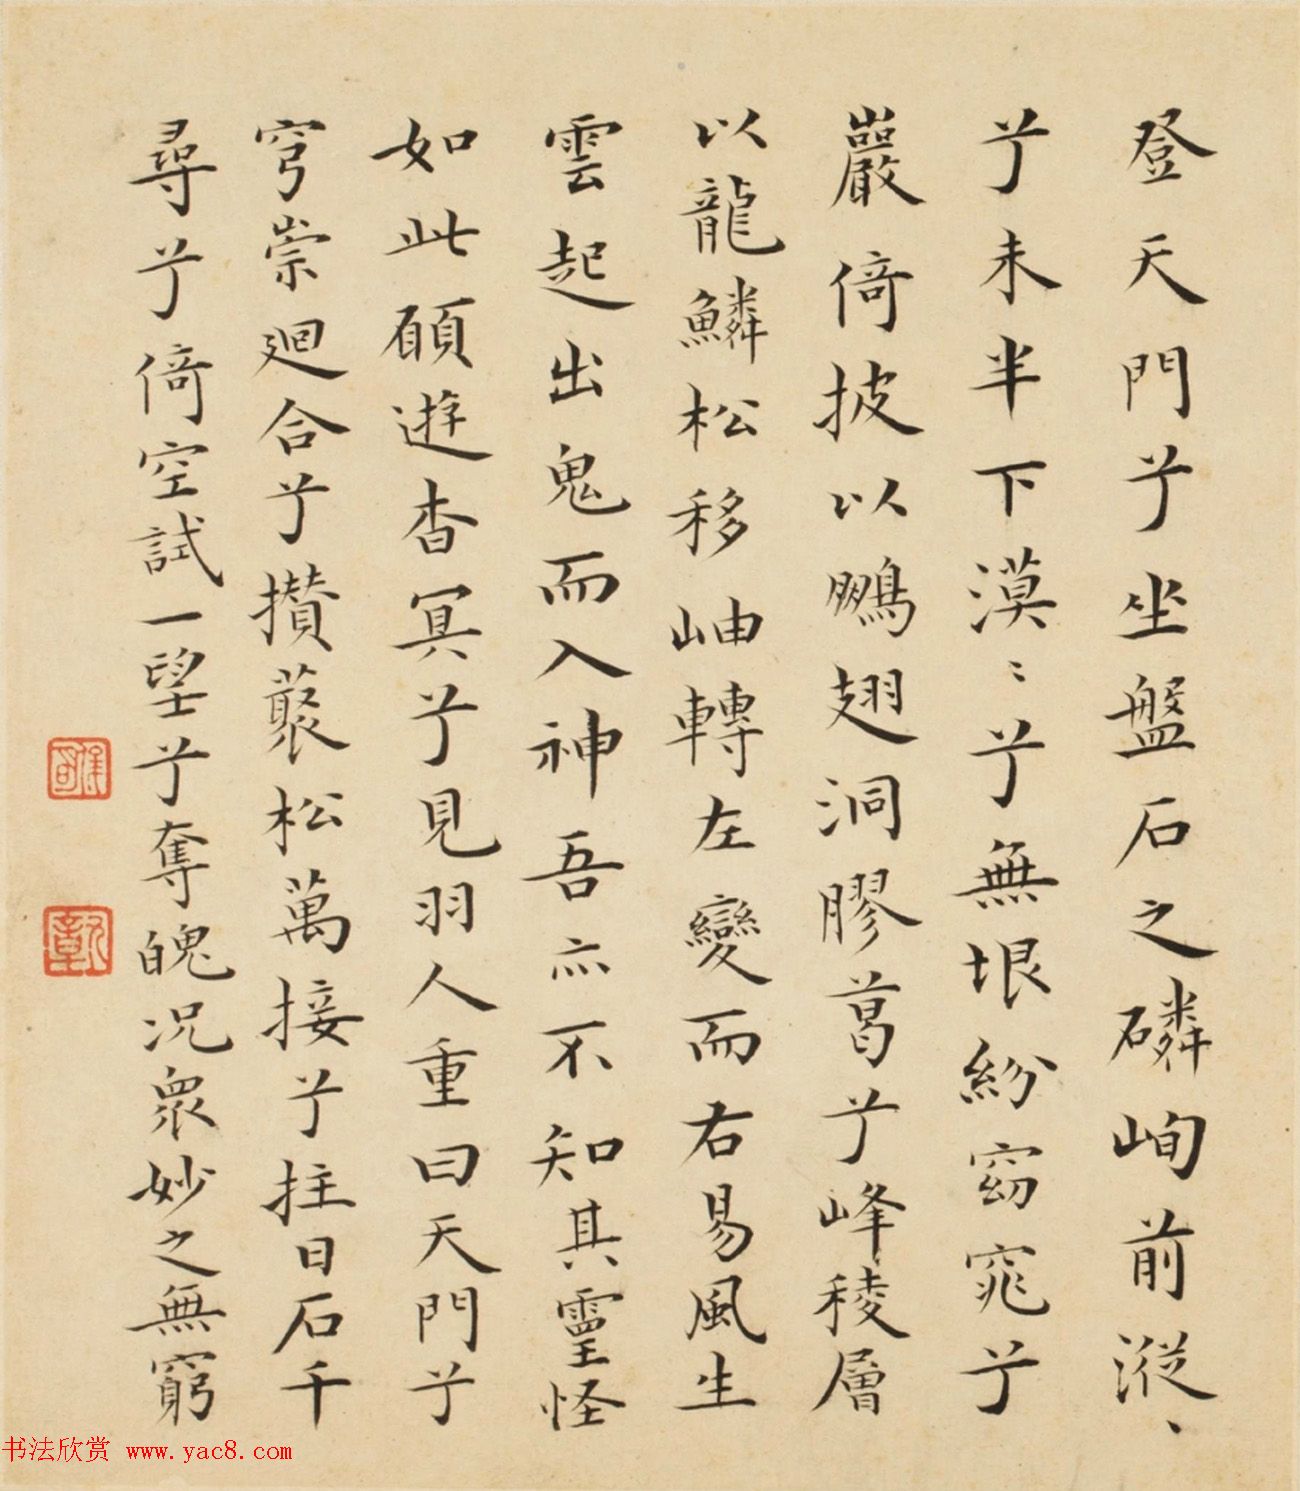 登天門兮坐盤石之磷峋前漎〻
兮未半下漠〻兮無垠紛窈窕兮
巖倚披以鵬翅洞膠葛兮峰稜層
以龍鱗松移岫轉左變而右易風生
雲起出鬼而入神吾亦不知其靈怪
如此願遊杳冥兮見羽人重曰天門兮
穹崇迴合兮攢叢松萬接兮拄日石千
尋兮倚空試一望兮奪魄況眾妙之無窮
书法欣赏 www.yac8.com